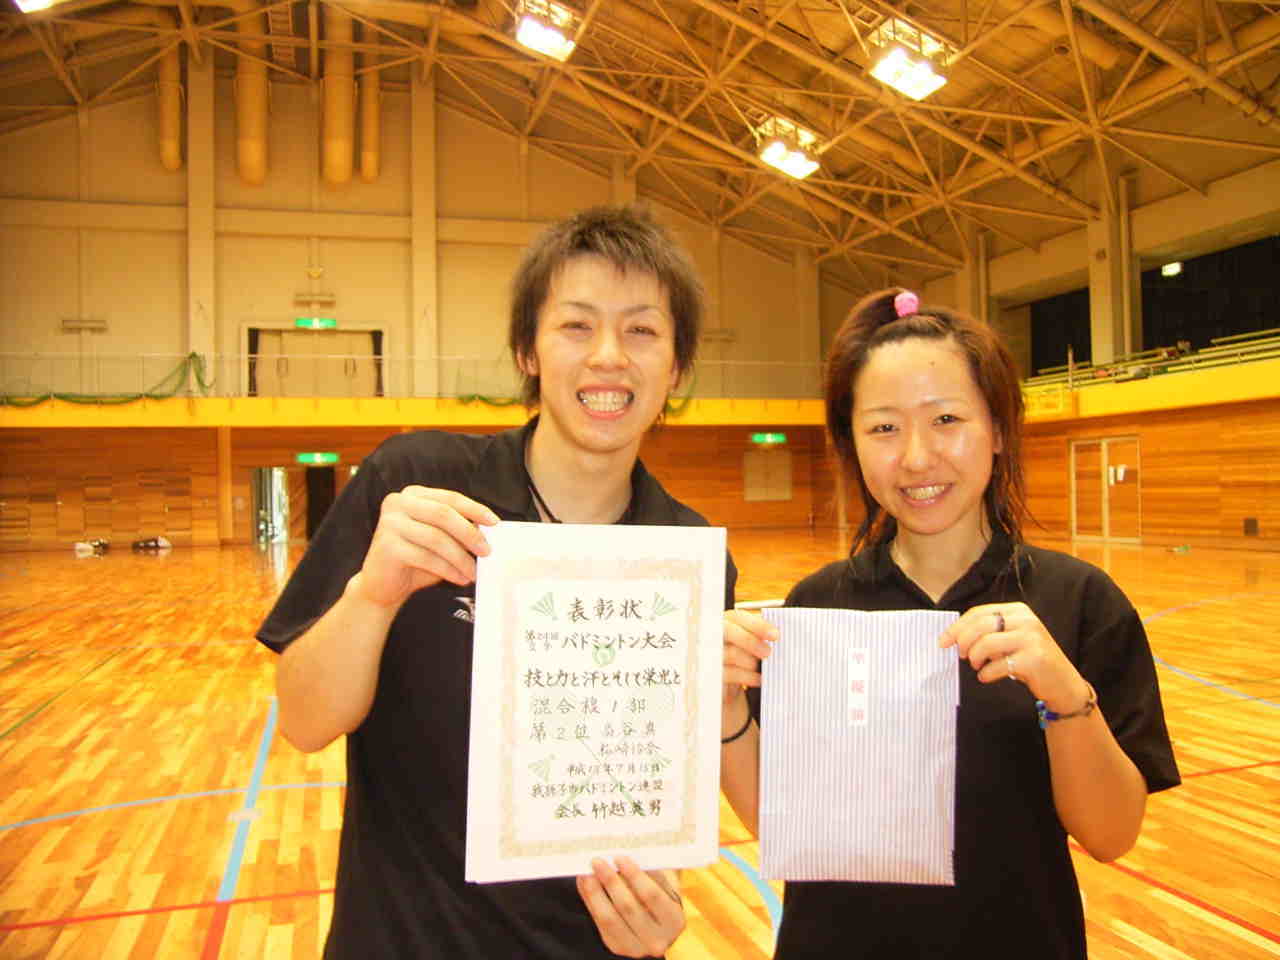 表彰状
第24回
バドミントン大会
技と力と汗とそして栄光と
混合複1部
第2位
平成18年7月
我孫子市バドミントン連盟
会長 竹越英男
準優勝